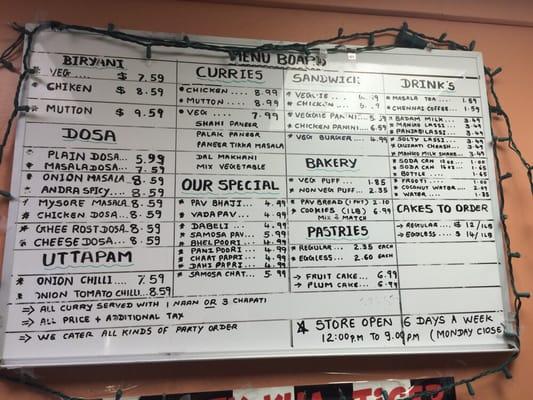 MENU BOARD
BIRYANI
VEG.... $ 7.59
CHIKEN $ 8.59
MUTTON $ 9.59
DOSA
PLAIN DOSA... 5.99
MASALA DOSA... 7.59
ONION MASALA 8.59
ANDRA SPICY.... 8.59
MYSORE MASALA. 8.59
CHICKEN DOSA... 8.59
GHEE ROST DOSA. 8.59
CHEESE DOSA... 8.59
UTTAPAM
ONION CHILLI... 7.59
ONION TOMATO CHILLI.. 8.59
CURRIES
CHICKEN.... 8.99
MUTTON.... 8.99
VEG.... 7.99
SHAHI PANEER
PALAK PANEER
PANEER TIKKA MASALA
DAL MAKHANI
MIX VEGETABLE
OUR SPECIAL
PAV BHAJI... 4.99
VADA PAV... 4.99
DABELI... 4.99
SAMOSA PAV... 5.99
BHEL POORI... 4.99
PANI POORI... 4.99
CHAAT PAPRI... 4.99
DAHI PAPRI... 4.99
SAMOSA CHAT... 5.99
SANDWICK
VEGGIE...
CHICKEN...
VEGGIE PANINI... 5.59
CHICKEN PANINI... 6.59
VEG BURGER... 4.99
BAKERY
VEG PUFF... 1.85
NON VEG PUFF... 2.35
PAV BREAD (1 PKT) 2.10
COOKIES (1LB) 6.99
MIX & MATCH
PASTRIES
REGULAR... 2.35 EACH
EGGLESS... 2.60 EACH
→ FRUIT CAKE... 6.99
→ PLUM CAKE... 6.99
DRINK'S
MASALA TEA... 1.59
CHENNAI COFFEE. 1.59
BADAM MILK... 3.49
MANGO LASSI... 3.49
PANJABI LASSI... 3.49
SOLTY LASSI... 3.49
GUJRATI CHHASH... 3.49
MANGO MILK SHAKE.. 3.49
SODA CAN
SODA CAN
BOTTLE...
FROOTI
COCONUT WATER...
WATER...
CAKES TO ORDER
→ REGULAR... $ 12/1LB
→ EGGLESS... $ 14/1LB
⇒ ALL CURRY SERVED WITH 1 NAAN OR 3 CHAPATI
⇒ ALL PRICE + ADDITIONAL TAX
⇒ WE CATER ALL KINDS OF PARTY ORDER
STORE OPEN 6 DAYS A WEEK
12:00PM TO 9.00PM (MONDAY CLOSE)